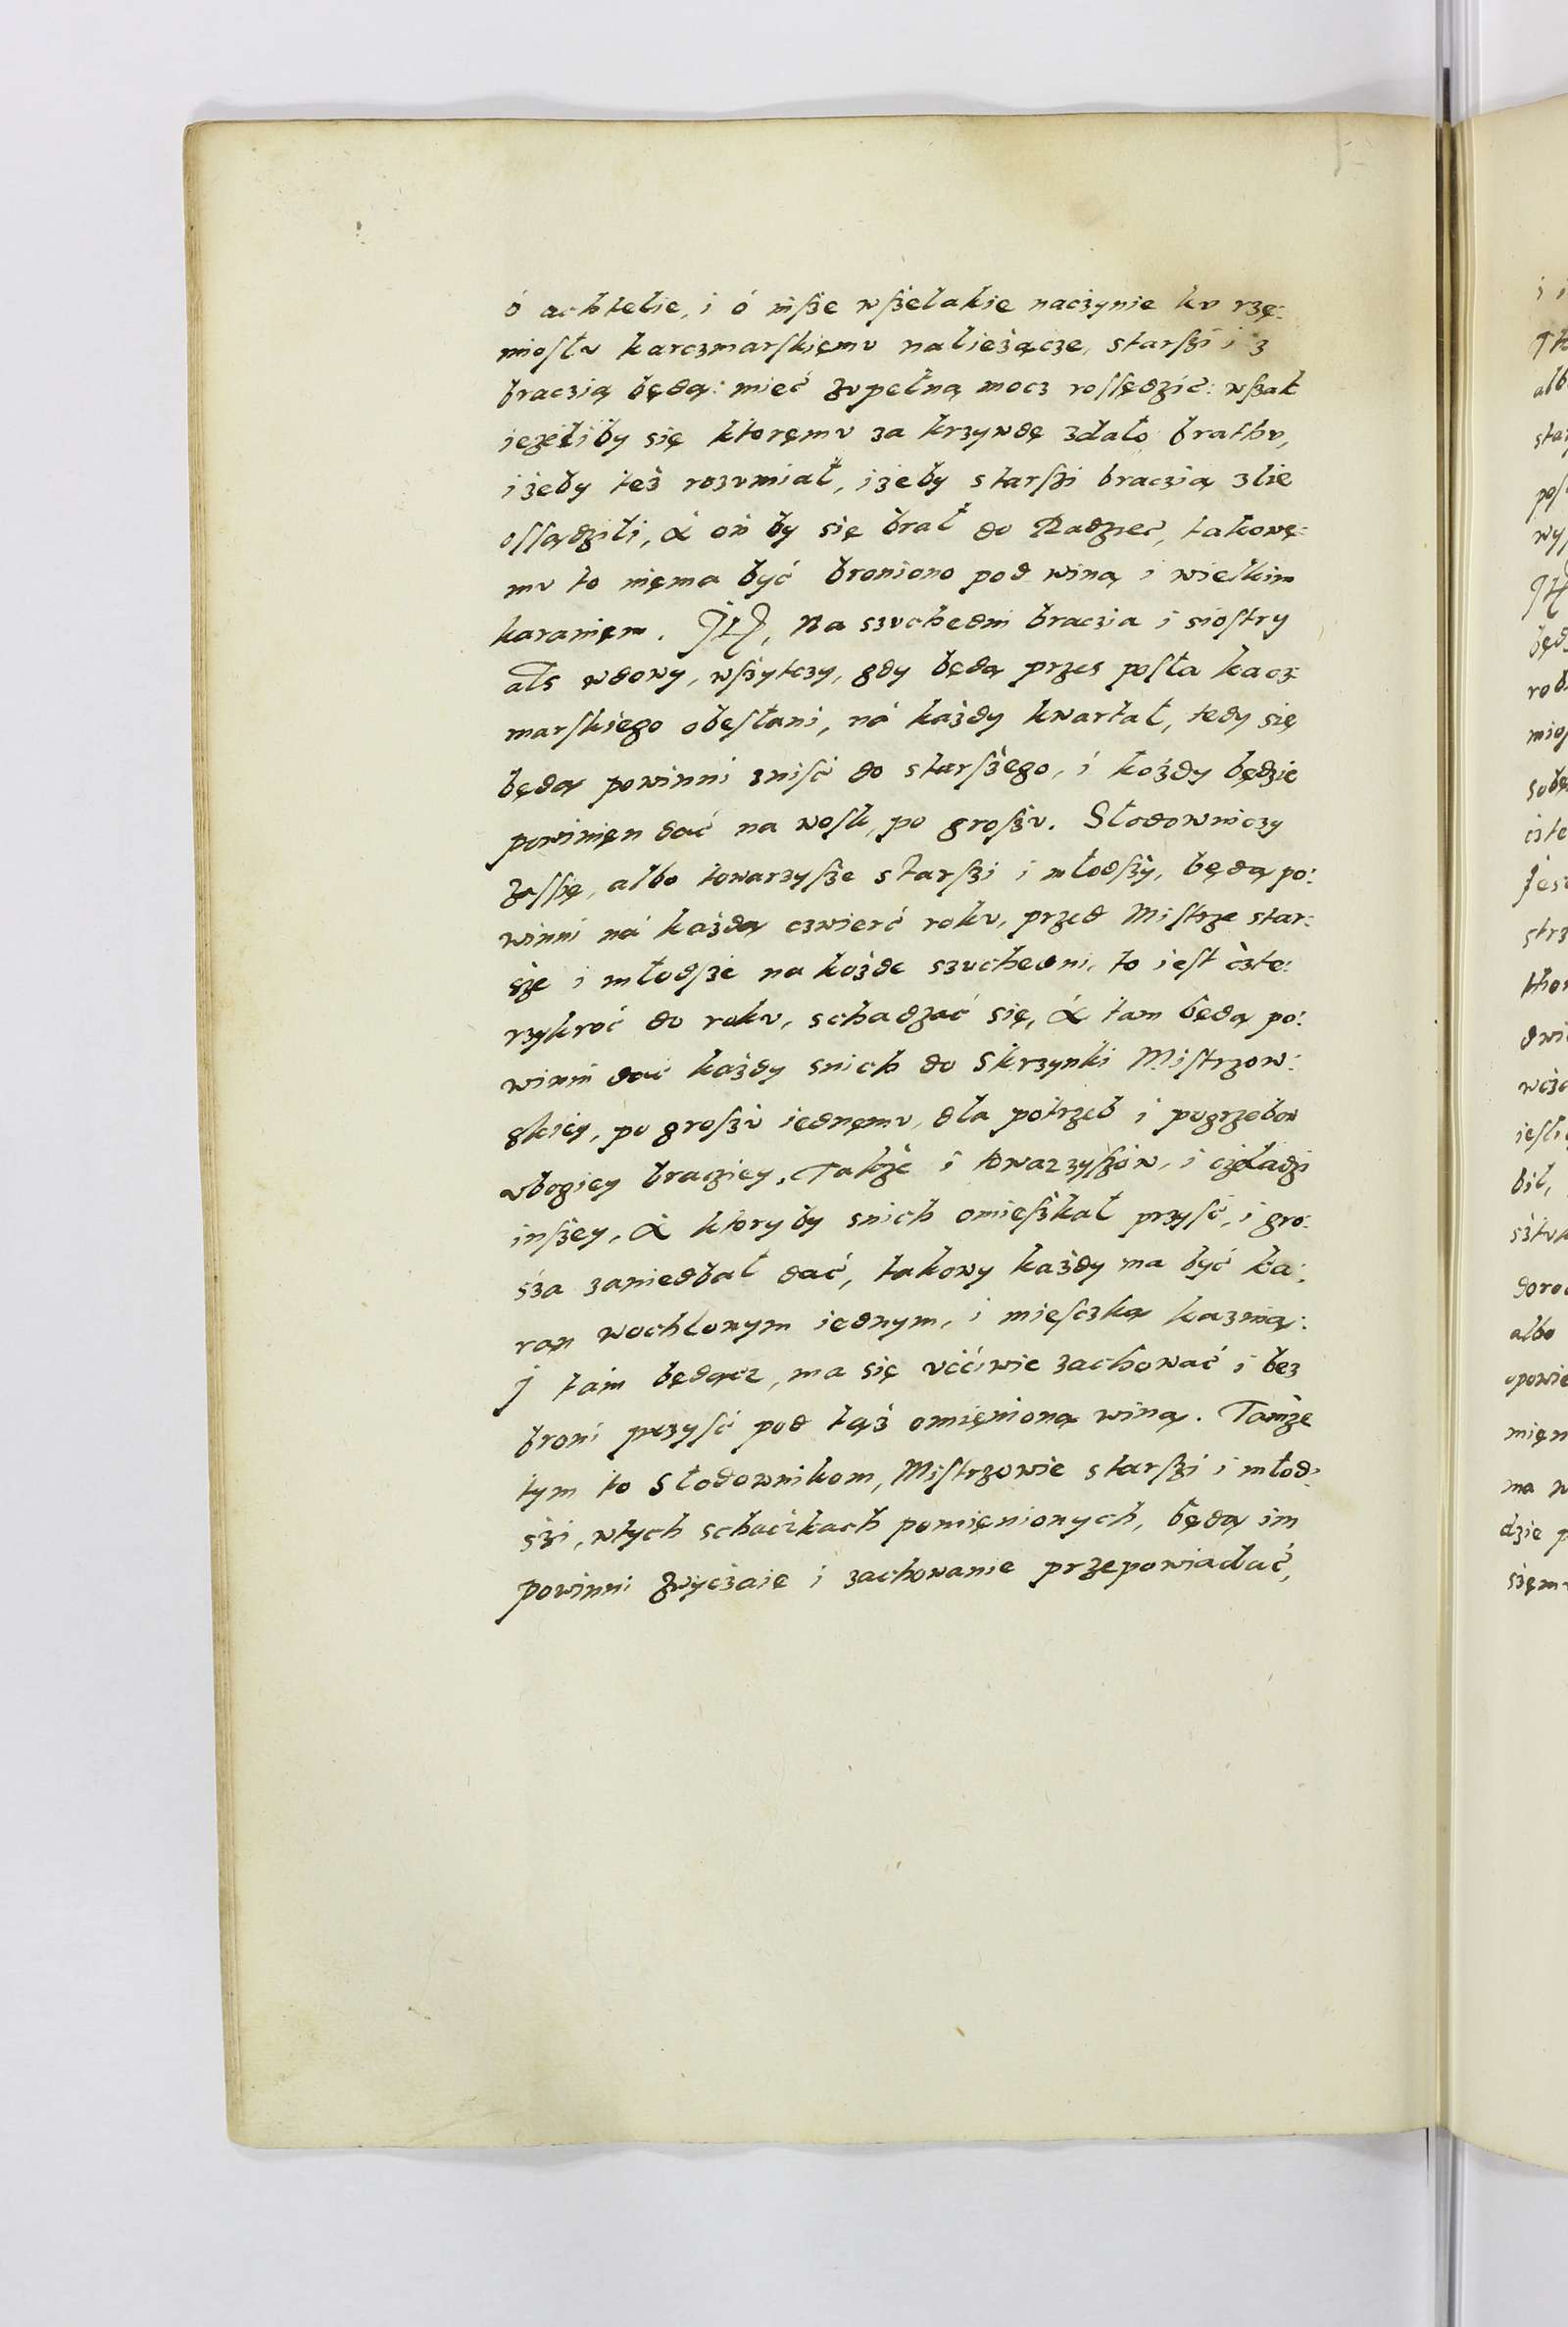 ó achtelie, i ó insze wszelakie naczynie ku rzę:
miosłu karczmarskięmu należżącze, starszi i z
braczią będą: mieć zupełną mocz rossędzić: wszak
ieżeliby się ktoręmu za krzywdę zdało brathu,
iżeby też rozumiał, iżeby starszi braczią zlie
ossądzili, á ón by się brał do Radziec, takowę:
mu to nięma być broniono pod winą i wielkim
karanięm. Itẽ, Na szuchedni braczia i siostry
als wdowy, wszytczy, gdy będą przes posła kacz:
marskiego obesłani, ná każdy kwartał, tedy się
będą powinni zniść do starszego, i kożdy będzie
powinięn dać na wosk, po groszu. Słodowniczy
zassię, albo towarzysze starszi i młodszy, będą po:
winni ná każdą czwierć roku, przed Mistrze star:
sze i młodsze na kożde szuchedni, to iest czte:
rzykroć do roku, schadzać się, á tam będą po:
winni dać każdy snich do Skrzynki Mistrzow:
skiey, po groszu iednęmu, dla potrzeb i pogrzebow
ubogiey braciey, Także i towarzyszów, i czeladzi
inszey, á ktory by snich omieszkał przyść, i gro:
sza zaniedbał dać, takowy każdy ma być ka:
ran wochlowym iednym, i miesczką kaznią:
j tam będącz, ma się uććiwie zachować i bez
broni przyść pod tąż omięnioną winą. Tamże
tym to Słodownikom, Mistrzowie starszi i młod:
szi, wtych schaczkach pomięnionych, będą im
powinni zwyczaie i zachowanie przepowiadać,